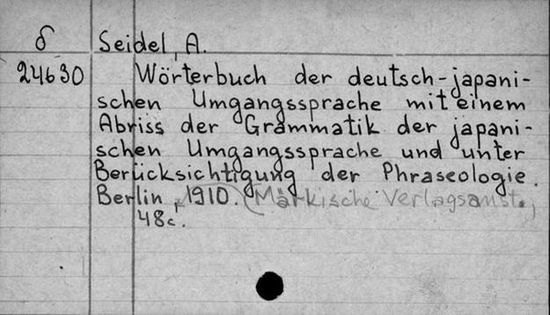 δ Seidel, A.
24630 Wörterbuch der deutsch-japani-
schen Umgangssprache mit einem
Abriss der Grammatik der japani-
schen Umgangssprache und unter
Berücksichtigung der Phraseologie.
Berlin, 1910. (Märkische Verlagsanst.)
48c.